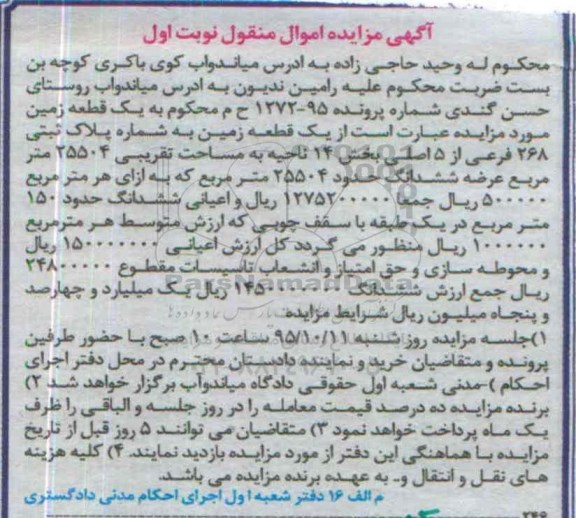 آگهی مزایده اموال منقول نوبت اول
محکوم له وحید حاجی زاده به ادرس میاندواب کوی باکری کوچه بن
بست ضربت محکوم علیه رامین ندیون به ادرس میاندواب روستای
حسن گندی شماره پرونده ۹۵-۱۲۷۲ ح م محکوم به یک قطعه زمین
مورد مزایده عبارت است از یک قطعه زمین به شماره پلاک ثبتی
۲۶۸ فرعی از ۵ اصلی بخش ۱۴ ناحیه به مساحت تقریبی ۲۵۵۰۴ متر
مربع عرضه ششدانگ حدود ۲۵۵۰۴ متر مربع که به ازای هر متر مربع
۵۰۰۰۰۰ ریال جمعا ۱۲۷۵۲۰۰۰۰۰ ریال و اعیانی ششدانگ حدود ۱۵۰
متر مربع در یک طبقه با سقف چوبی که ارزش متوسط هر مترمربع
۱۰۰۰۰۰۰ ریال منظور می گردد کل ارزش اعیانی ۱۵۰۰۰۰۰۰۰ ریال
و محوطه سازی و حق امتیاز و انشعاب تاسیسات مقطوع ۲۴۸۰۰۰۰۰
ریال جمع ارزش ششدانگ ریال یک میلیارد و چهارصد
و پنجاه میلیون ریال شرایط مزایده
۱)جلسه مزایده روز شنبه ۹۵/۱۰/۱۱ ساعت ۱۰ صبح با حضور طرفین
پرونده و متقاضیان خرید و نماینده دادستان محترم در محل دفتر اجرای
احکام )-مدنی شعبه اول حقوقی دادگاه میاندوآب برگزار خواهد شد ۲)
برنده مزایده ده درصد قیمت معامله را در روز جلسه و الباقی را ظرف
یک ماه پرداخت خواهد نمود ۳) متقاضیان می توانند ۵ روز قبل از تاریخ
مزایده با هماهنگی این دفتر از مورد مزایده بازدید نمایند. ۴) کلیه هزینه
های نقل و انتقال و.. به عهده برنده مزایده می باشد.
م الف ۱۶ دفتر شعبه اول اجرای احکام مدنی دادگستری